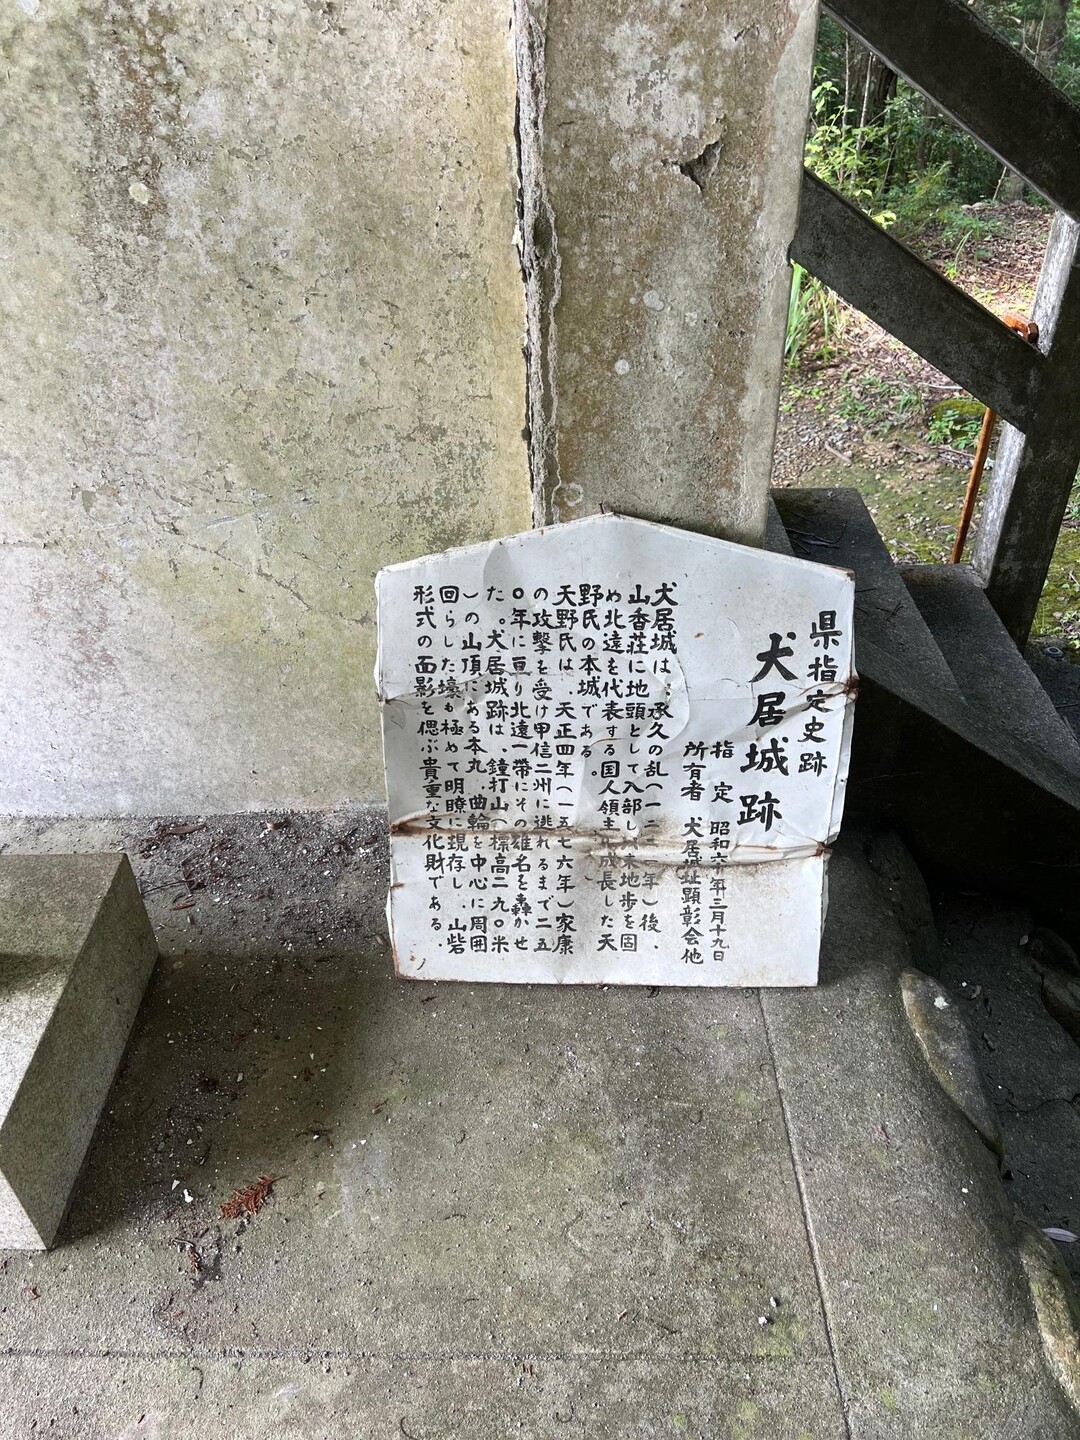 県指定史跡
犬居城跡
指定 昭和六十年三月十九日
所有者 犬居城址顕彰会他
犬居城は、承久の乱(一二二一年)後、
山香荘に地頭として入部し、本地歩を固
め北遠を代表する国人領主に成長した天
野氏の本城である。
天野氏は、天正四年(一五七六年)家康
の攻撃を受け甲信二州に逃れるまで二五
〇年に亘り北遠一帯にその雄名を轟かせ
た。犬居城跡は、鐘打山(標高二九〇米
)の山頂にある本丸、曲輪を中心に周囲
回らした壕も極めて明瞭に現存し、山砦
形式の面影を偲ぶ貴重な文化財である。